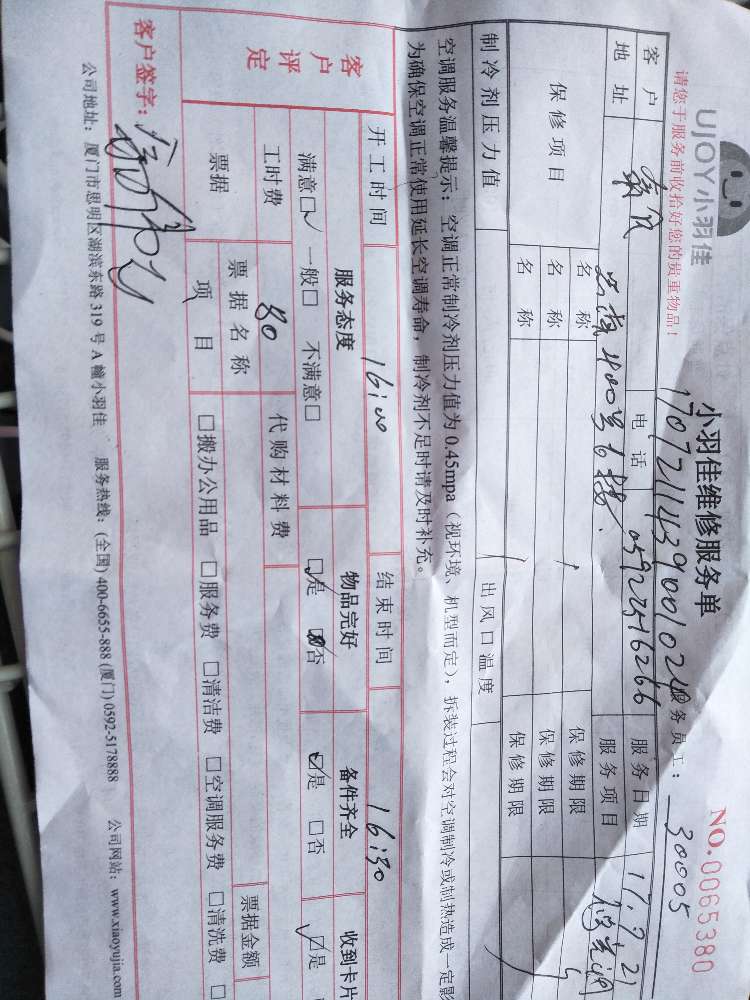 UJOY小羽佳
小羽佳维修服务单
NO.0065380
请您于服务前收拾好您的贵重物品！
17072114390010240
服务员工：30005
客户
电话 05922516266
服务日期 17.7.21
地址 400号6楼.
服务项目
保修项目
名称 保修期限
名称 保修期限
名称 保修期限
制冷剂压力值 出风口温度
空调服务温馨提示：空调正常制冷剂压力值为0.45mpa（视环境、机型而定），拆装过程会对空调制冷或制热造成一定影
为确保空调正常使用延长空调寿命，制冷剂不足时请及时补充。
开工时间 16:00 结束时间 16:30
客户评定
服务态度 物品完好 备件齐全 收到卡片
满意☑ 一般□ 不满意□ ☑是 □否 ☑是 □否 ☑是
工时费 80 代购材料费
票据 票据名称 票据金额
项目 □搬办公用品 □服务费 □清洁费 □空调服务费 □清洗费
客户签字：
公司地址：厦门市思明区湖滨东路319号A幢小羽佳 服务热线：(全国) 400-6655-888 (厦门) 0592-5178888 公司网站：www.xiaoyujia.com